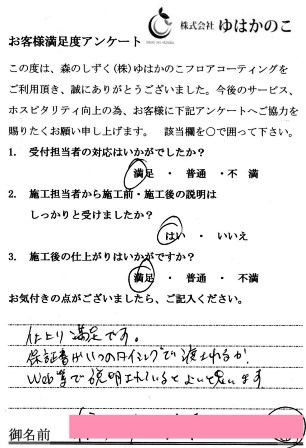 株式会社 ゆはかのこ
お客様満足度アンケート
この度は、森のしずく(株)ゆはかのこフロアコーティングを
ご利用頂き、誠にありがとうございました。今後のサービス、
ホスピタリティ向上の為、お客様に下記アンケートへご協力を
賜りたくお願い申し上げます。 該当欄を○で囲って下さい。
1. 受付担当者の対応はいかがでしたか?
満足 ・ 普通 ・不 満
2. 施工担当者から施工前・施工後の説明は
しっかりと受けましたか?
はい ・ いいえ
3. 施工後の仕上がりはいかがですか?
満足 ・ 普通 ・ 不満
お気付きの点がございましたら、ご記入ください。
仕上り満足です。
保証書がいつのタイミングで渡されるか
Web等で説明されているとよいと思います
御名前